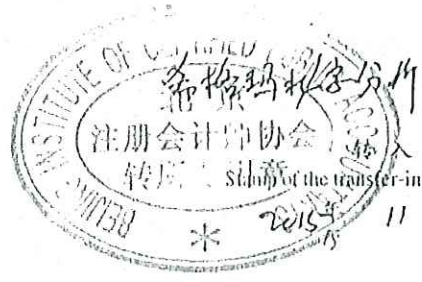 BEIJING INSTITUTE OF CERTIFIED PUBLIC ACCOUNTANTS
希格玛北京分所
注册会计师协会
转所
Stamp of the transfer-in
2015
11